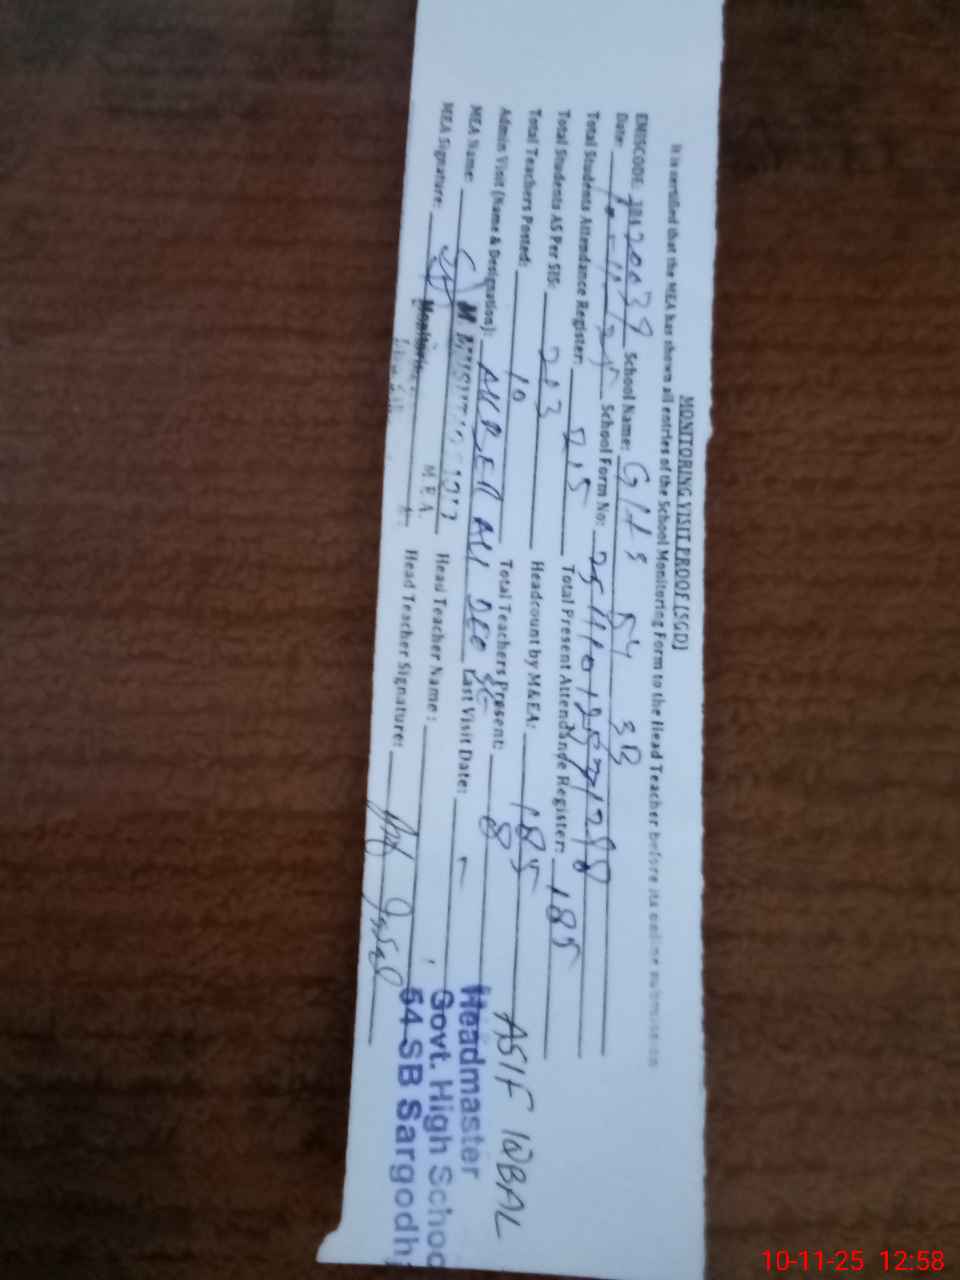 MONITORING VISIT PROOF [SGD]
It is certified that the MEA has shown all entries of the School Monitoring Form to the Head Teacher before its online submission
EMISCODE: School Name: GHS 54 SB
Date: 10-11-25 School Form No:
Total Students Attendance Register: 215 Total Present Attendance Register: 185
Total Students AS Per SIS: 213 Headcount by M&EA: 185
Total Teachers Posted: 10 Total Teachers Present: 8
Admin Visit (Name & Designation): AKBER ALI DEO SE Last Visit Date:
MEA Name: Head Teacher Name: ASIF IQBAL
MEA Signature: Head Teacher Signature:
M.E.A.
Headmaster
Govt. High School
54-SB Sargodh
10-11-25 12:58